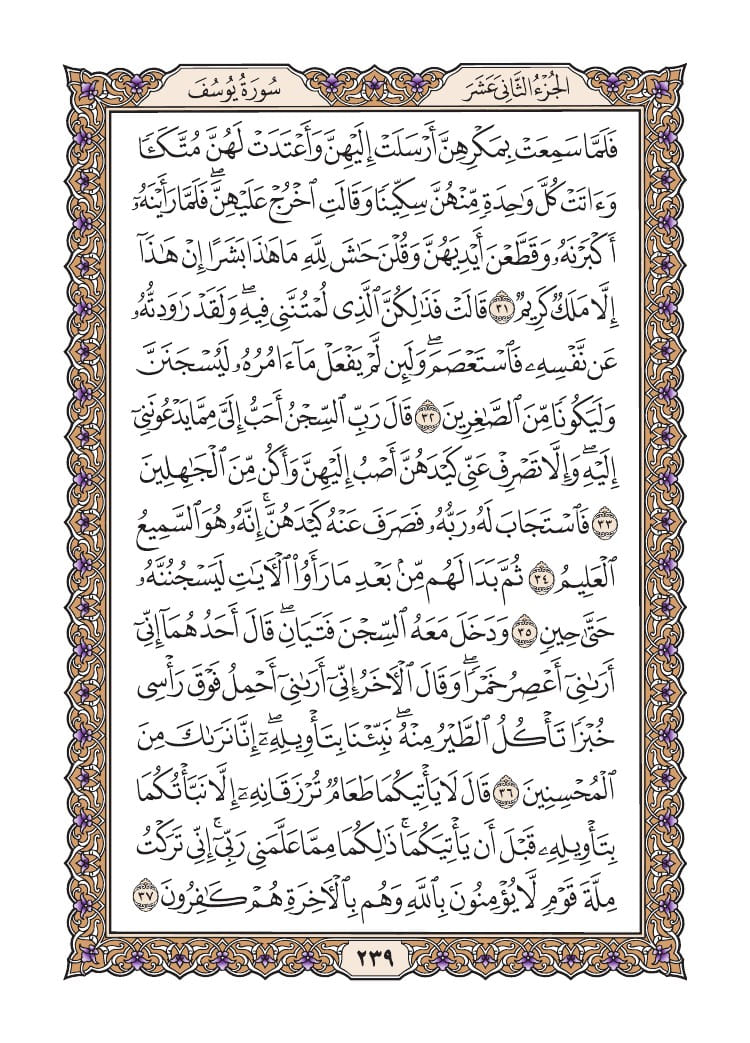 الجُزْءُ الثَّانِى عَشَرَ
سُورَةُ يُوسُفَ
فَلَمَّا سَمِعَتْ بِمَكْرِهِنَّ أَرْسَلَتْ إِلَيْهِنَّ وَأَعْتَدَتْ لَهُنَّ مُتَّكَـًٔا
وَءَاتَتْ كُلَّ وَٰحِدَةٍ مِّنْهُنَّ سِكِّينًا وَقَالَتِ ٱخْرُجْ عَلَيْهِنَّۖ فَلَمَّا رَأَيْنَهُۥٓ
أَكْبَرْنَهُۥ وَقَطَّعْنَ أَيْدِيَهُنَّ وَقُلْنَ حَٰشَ لِلَّهِ مَا هَٰذَا بَشَرًا إِنْ هَٰذَآ
إِلَّا مَلَكٌ كَرِيمٌ ٣١ قَالَتْ فَذَٰلِكُنَّ ٱلَّذِى لُمْتُنَّنِى فِيهِۖ وَلَقَدْ رَٰوَدتُّهُۥ
عَن نَّفْسِهِۦ فَٱسْتَعْصَمَۖ وَلَئِن لَّمْ يَفْعَلْ مَآ ءَامُرُهُۥ لَيُسْجَنَنَّ
وَلَيَكُونًا مِّنَ ٱلصَّٰغِرِينَ ٣٢ قَالَ رَبِّ ٱلسِّجْنُ أَحَبُّ إِلَىَّ مِمَّا يَدْعُونَنِىٓ
إِلَيْهِۖ وَإِلَّا تَصْرِفْ عَنِّى كَيْدَهُنَّ أَصْبُ إِلَيْهِنَّ وَأَكُن مِّنَ ٱلْجَٰهِلِينَ
٣٣ فَٱسْتَجَابَ لَهُۥ رَبُّهُۥ فَصَرَفَ عَنْهُ كَيْدَهُنَّۚ إِنَّهُۥ هُوَ ٱلسَّمِيعُ
ٱلْعَلِيمُ ٣٤ ثُمَّ بَدَا لَهُم مِّنۢ بَعْدِ مَا رَأَوُا۟ ٱلْـَٔايَٰتِ لَيَسْجُنُنَّهُۥ
حَتَّىٰ حِينٍ ٣٥ وَدَخَلَ مَعَهُ ٱلسِّجْنَ فَتَيَانِۖ قَالَ أَحَدُهُمَآ إِنِّىٓ
أَرَىٰنِىٓ أَعْصِرُ خَمْرًاۖ وَقَالَ ٱلْـَٔاخَرُ إِنِّىٓ أَرَىٰنِىٓ أَحْمِلُ فَوْقَ رَأْسِى
خُبْزًا تَأْكُلُ ٱلطَّيْرُ مِنْهُۖ نَبِّئْنَا بِتَأْوِيلِهِۦٓۖ إِنَّا نَرَىٰكَ مِنَ
ٱلْمُحْسِنِينَ ٣٦ قَالَ لَا يَأْتِيكُمَا طَعَامٌ تُرْزَقَانِهِۦٓ إِلَّا نَبَّأْتُكُمَا
بِتَأْوِيلِهِۦ قَبْلَ أَن يَأْتِيَكُمَاۚ ذَٰلِكُمَا مِمَّا عَلَّمَنِى رَبِّىٓۚ إِنِّى تَرَكْتُ
مِلَّةَ قَوْمٍ لَّا يُؤْمِنُونَ بِٱللَّهِ وَهُم بِٱلْـَٔاخِرَةِ هُمْ كَٰفِرُونَ ٣٧
٢٣٩